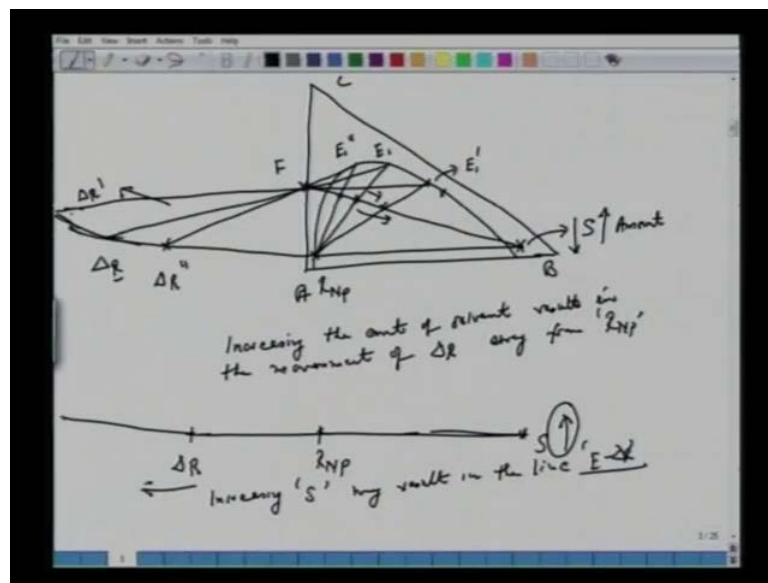 File Edit View Insert Actions Tools Help
C
F E₁" E₁ → E₁'
ΔR'
ΔR ΔR" → ↓ S ↑ Amount
A R_NP B
Increasing the amt of solvent results in
the movement of ΔR away from 'R_NP'
ΔR R_NP S ↑
← Increasing 'S' may result in the line 'E
3 / 25